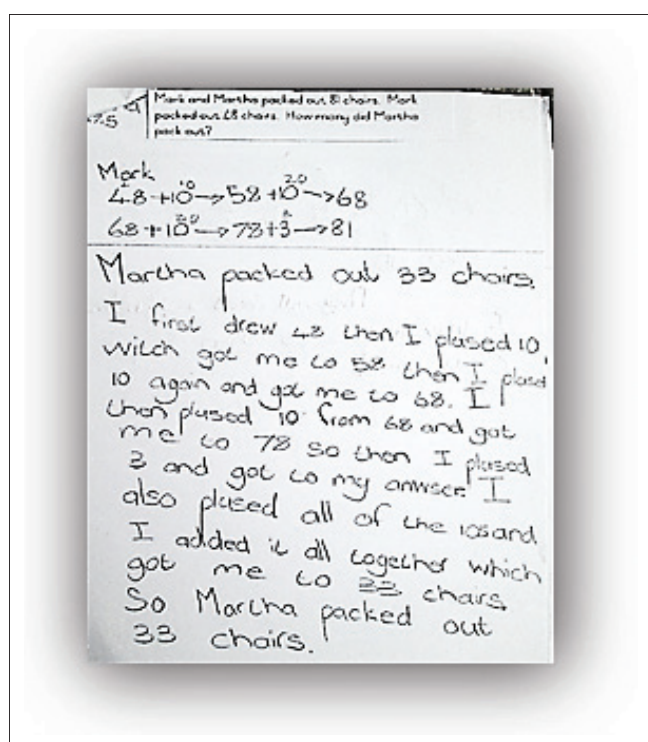 7.5
Mark and Martha packed out 81 chairs. Mark
packed out 48 chairs. How many did Martha
pack out?
Mark
10 20
48+10→58+10→68
30
68+10→78+3→81
Martha packed out 33 chairs.
I first drew 48 then I plused 10,
witch got me to 58 then I plused
10 again and got me to 68. I
then plused 10 from 68 and got
me to 78 so then I plused
3 and got to my anwser. I
also plused all of the 10s and
I added it all together which
got me to 33 chairs
So Martha packed out
33 chairs.